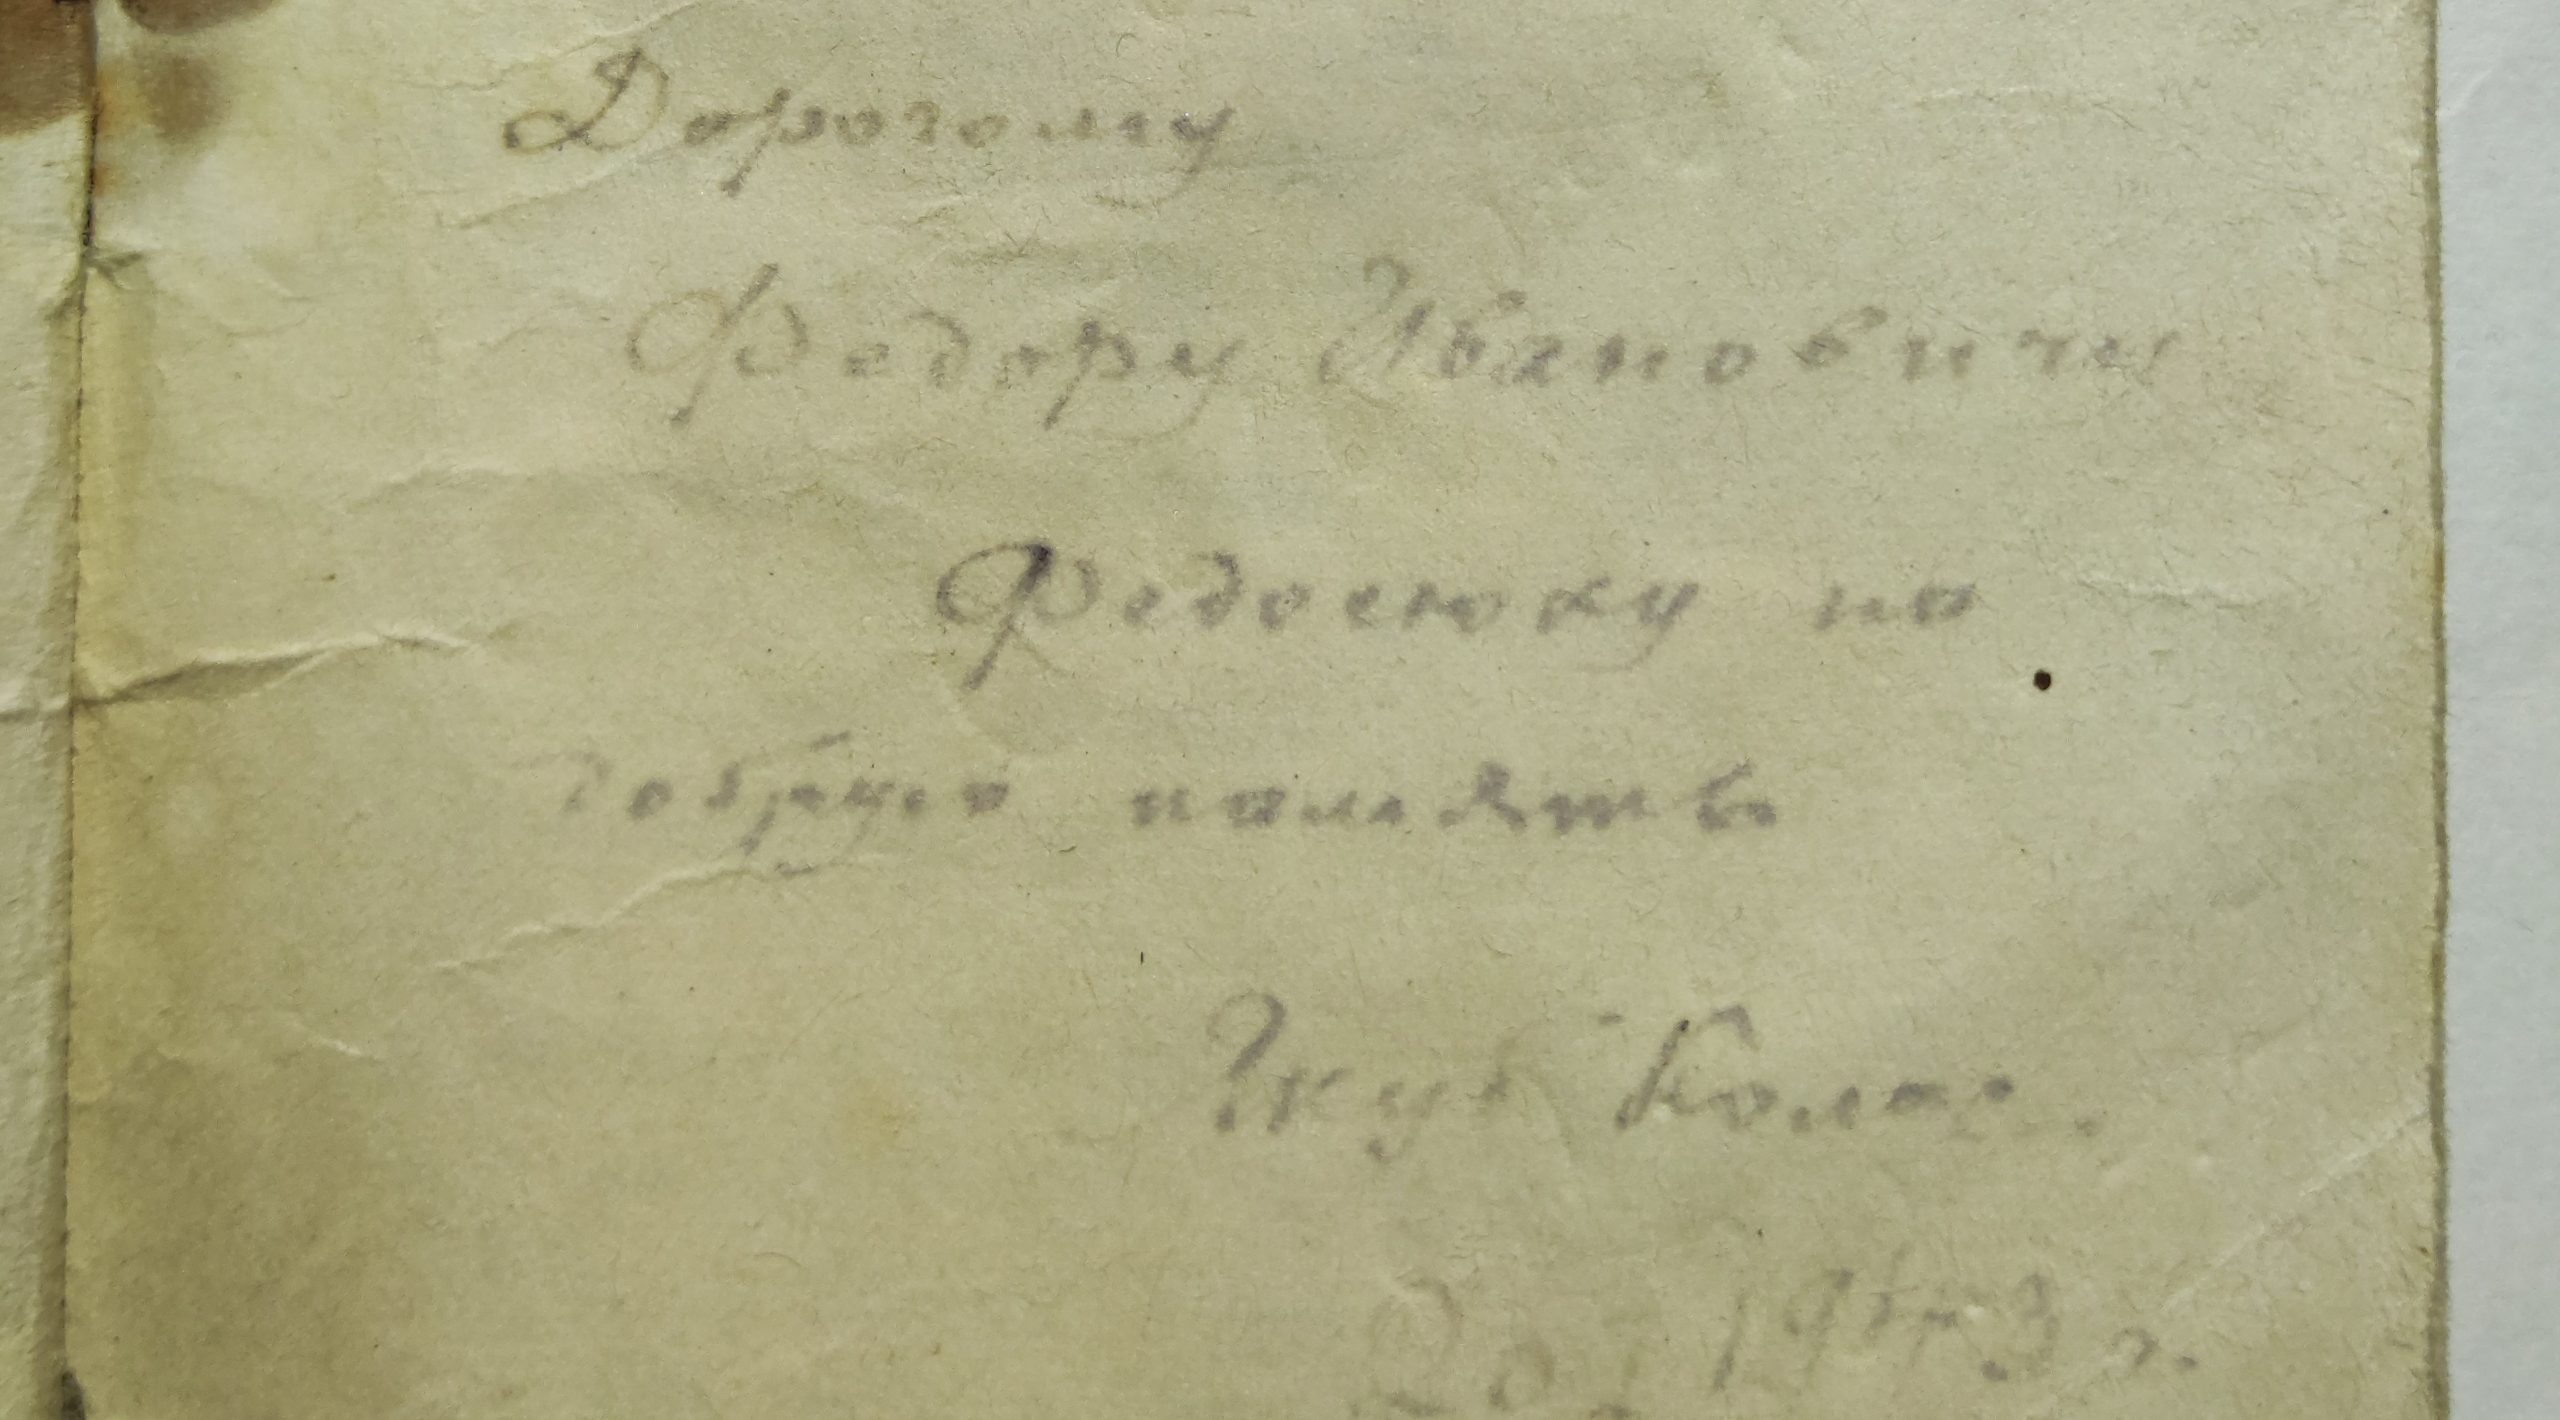 Дорогому
Федору Ивановичу
Федосюку на
добрую память
Якуб Колас.
г.